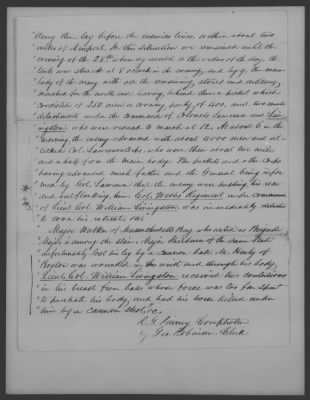 "Army then lay before the enemies lines within about two
"miles of Newport. In this situation we remained until the
"evening of the 28th when by reason to the orders of the day, the
"tents were struck at 8 o'clock in the evening, and by 9 the main
"body of the army with all the remaining stores and artillery,
"marched for the north end leaving behind them a picket which
"consisted of 250 men a covering party of 400, and two small
"detachments under the command of Colonels Laurens and Liv-
"ingston who were ordered to march at 12. At about 6 in the
"morning the enemy advanced with about 4000 men and at-
"tacked Col. Laurens Corps, who were then about two miles
"and a half from the main body. The Pickets and other Corps
"having advanced much faster and the General being infor-
"med by Col. Laurens that the enemy were pushing his rear
"and out flanking him Col. Webbs Regiment under command
"of Lieut. Col. William Livingston, was immediately detached
"to cover his retreat &c
"Major Walker of Massachusetts Bay who acted as Brigade
"Major is among the slain, Major Sherburne of the same State
"unfortunately lost his leg by a cannon ball. Mr. Henly of
"Boston was wounded in the wrist and through his body,
"Lieut. Col. William Livingston received two contusions
"in his breast from balls whose force was too far spent
"to penetrate his body, and had his horse killed under
"him by a cannon shot &c.
Comptroller
by Geo Robinson Clerk